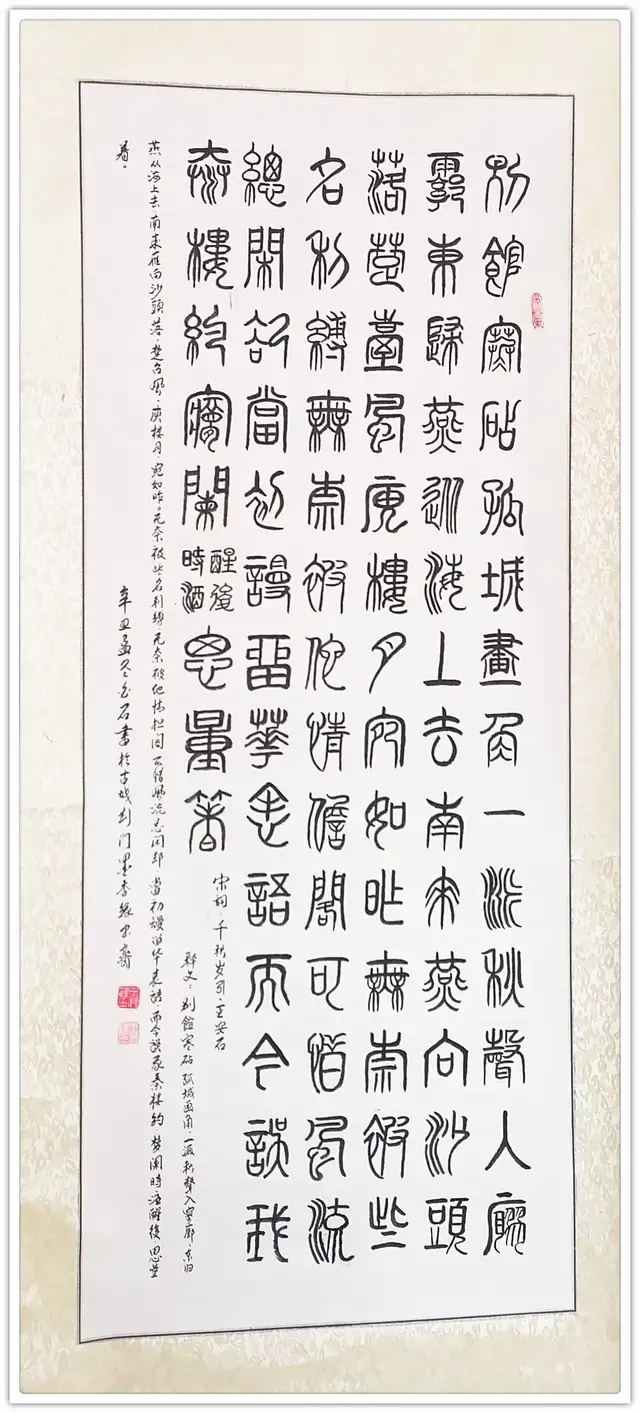 别館寒砧孤城畫角一派秋聲入廫
霩東歸燕從海上去南來燕向沙頭
落楚臺風庾樓月宛如昨無奈被些
名利縛無奈被他情擔閣可惜風流
總閑却當初謾留華表語而今誤我
秦樓約夢闌時酒醒後思量着
宋词·千秋岁引·王安石
释文：别館寒砧·孤城画角·一派秋聲入寥廓·东归
燕从海上去·南来雁向沙頭落·楚台風·庾楼月·宛如昨·无奈被些名利缚·无奈被他情担阁·可惜風流总闲却·當初謾留华表語·而今誤我秦楼约·梦阑時·酒醒後·思量
着。
辛丑孟冬金石書於古城荆门墨香缘